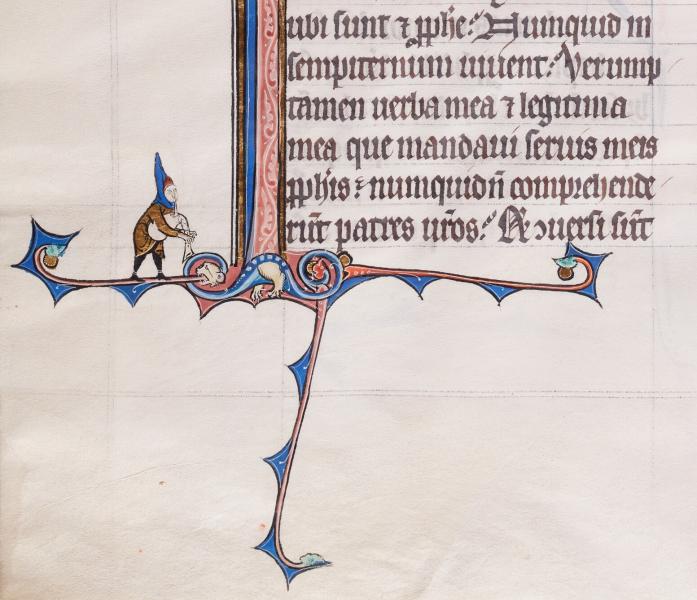 ubi sunt ⁊ ꝓph̄e: Numquid in
sempiternum uiuent: Verump
tamen uerba mea ⁊ legitima
mea que mandaui seruis meis
ꝓph̄is: numquid n̄ comprehende
rūt patres ur̄os: Et ꝯuersi sūt